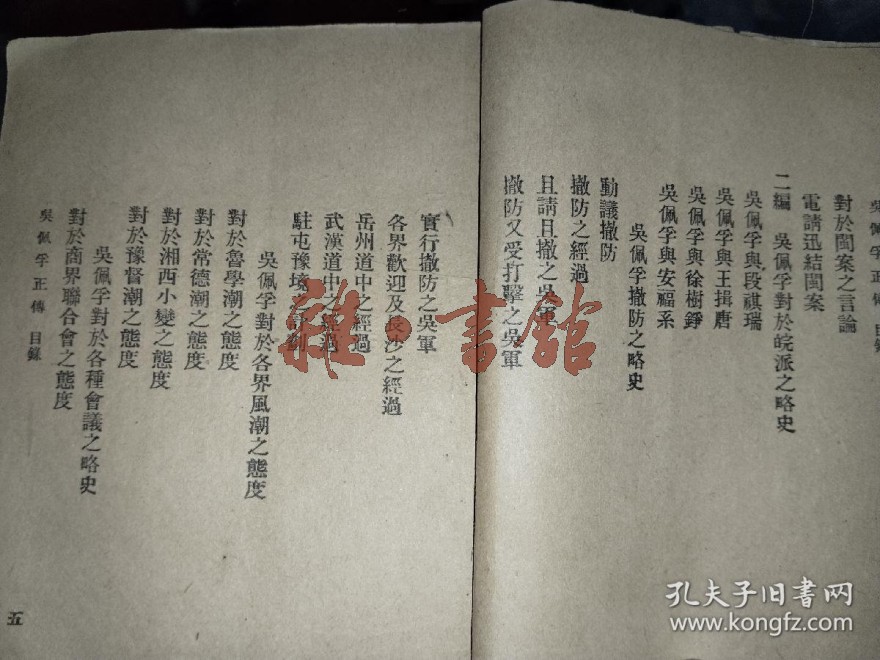 吳佩孚正傳 目錄
對於閩案之言論
電請迅結閩案
二編 吳佩孚對於皖派之略史
吳佩孚與段祺瑞
吳佩孚與王揖唐
吳佩孚與徐樹錚
吳佩孚與安福系
吳佩孚撤防之略史
動議撤防
撤防之經過
且請且撤之吳軍
撤防又受打擊之吳軍
實行撤防之吳軍
各界歡迎及長沙之經過
岳州道中之經過
武漢道中之經過
駐屯豫境之計劃
吳佩孚對於各界風潮之態度
對於魯學潮之態度
對於常德潮之態度
對於湘西小變之態度
對於豫督潮之態度
吳佩孚對於各種會議之略史
對於商界聯合會之態度
吳佩孚正傳 目錄
五
雜·書館
孔夫子旧书网
www.kongfz.com